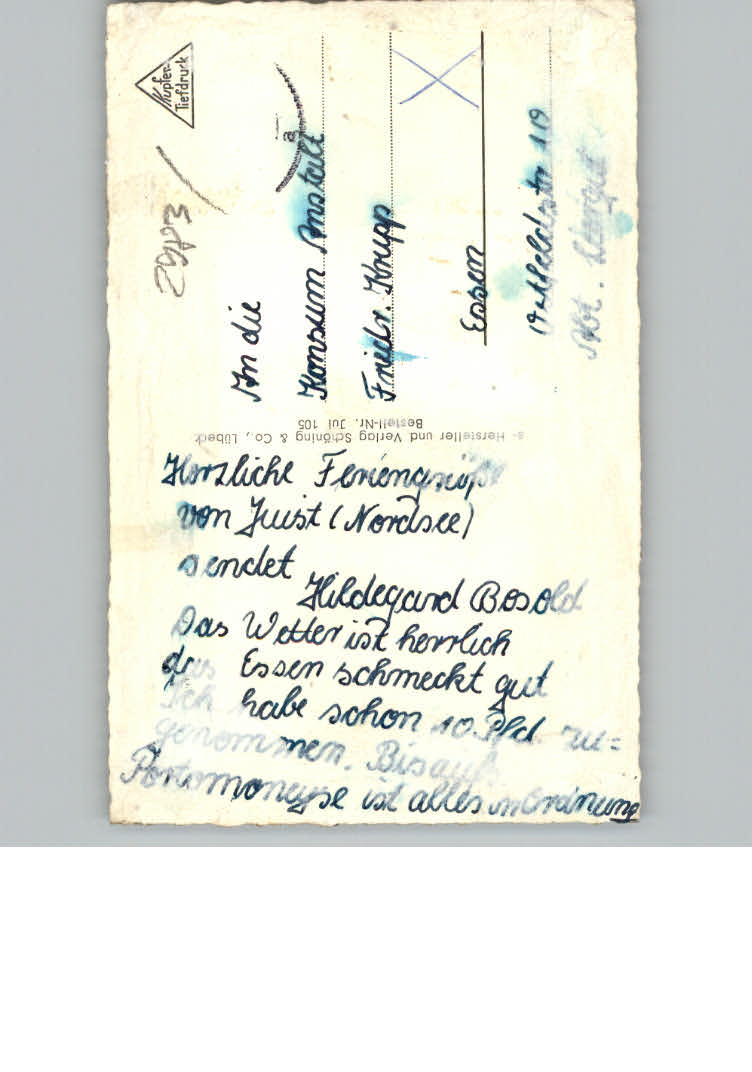 Herzliche Feriengrüße
von Juist (Nordsee)
sendet
Hildegard Bosold
Das Wetter ist herrlich
das Essen schmeckt gut
Ich habe schon 10 Pfd. zu=
genommen. Bis aufs
Portomoneyse ist alles in Ordnung
An die
Konsum Anstalt
Friedr. Krupp
Essen
119
Abt.
Kupfer-
Tiefdruck
Hersteller und Verlag Schöning & Co., Lübeck
Bestell-Nr. Jui 105